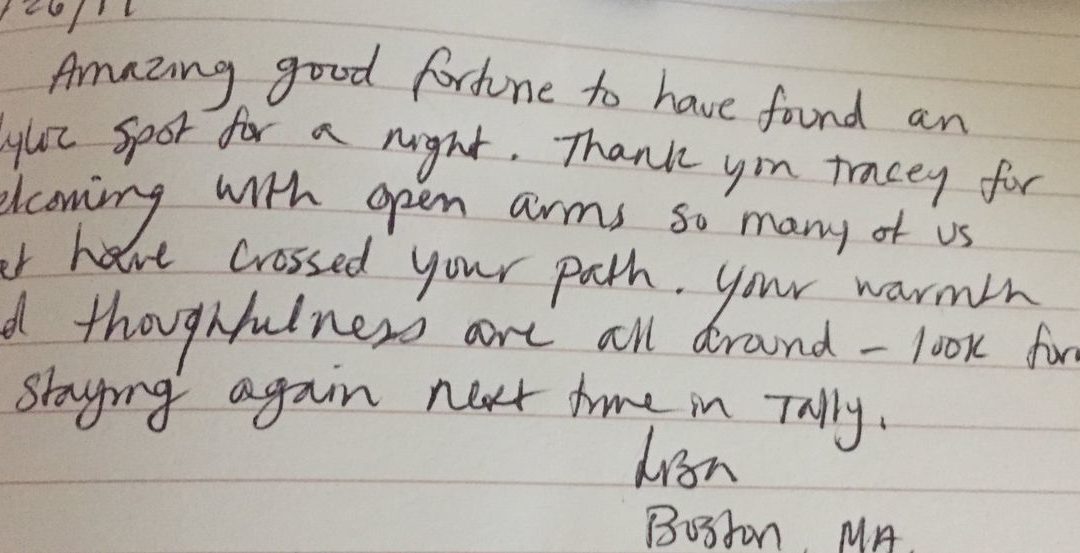 /26/17
Amazing good fortune to have found an
yllic spot for a night. Thank you Tracey for
elcoming with open arms so many of us
at have crossed your path. Your warmth
d thoughtfulness are all around - look for
staying again next time in Tally.
Boston, MA.